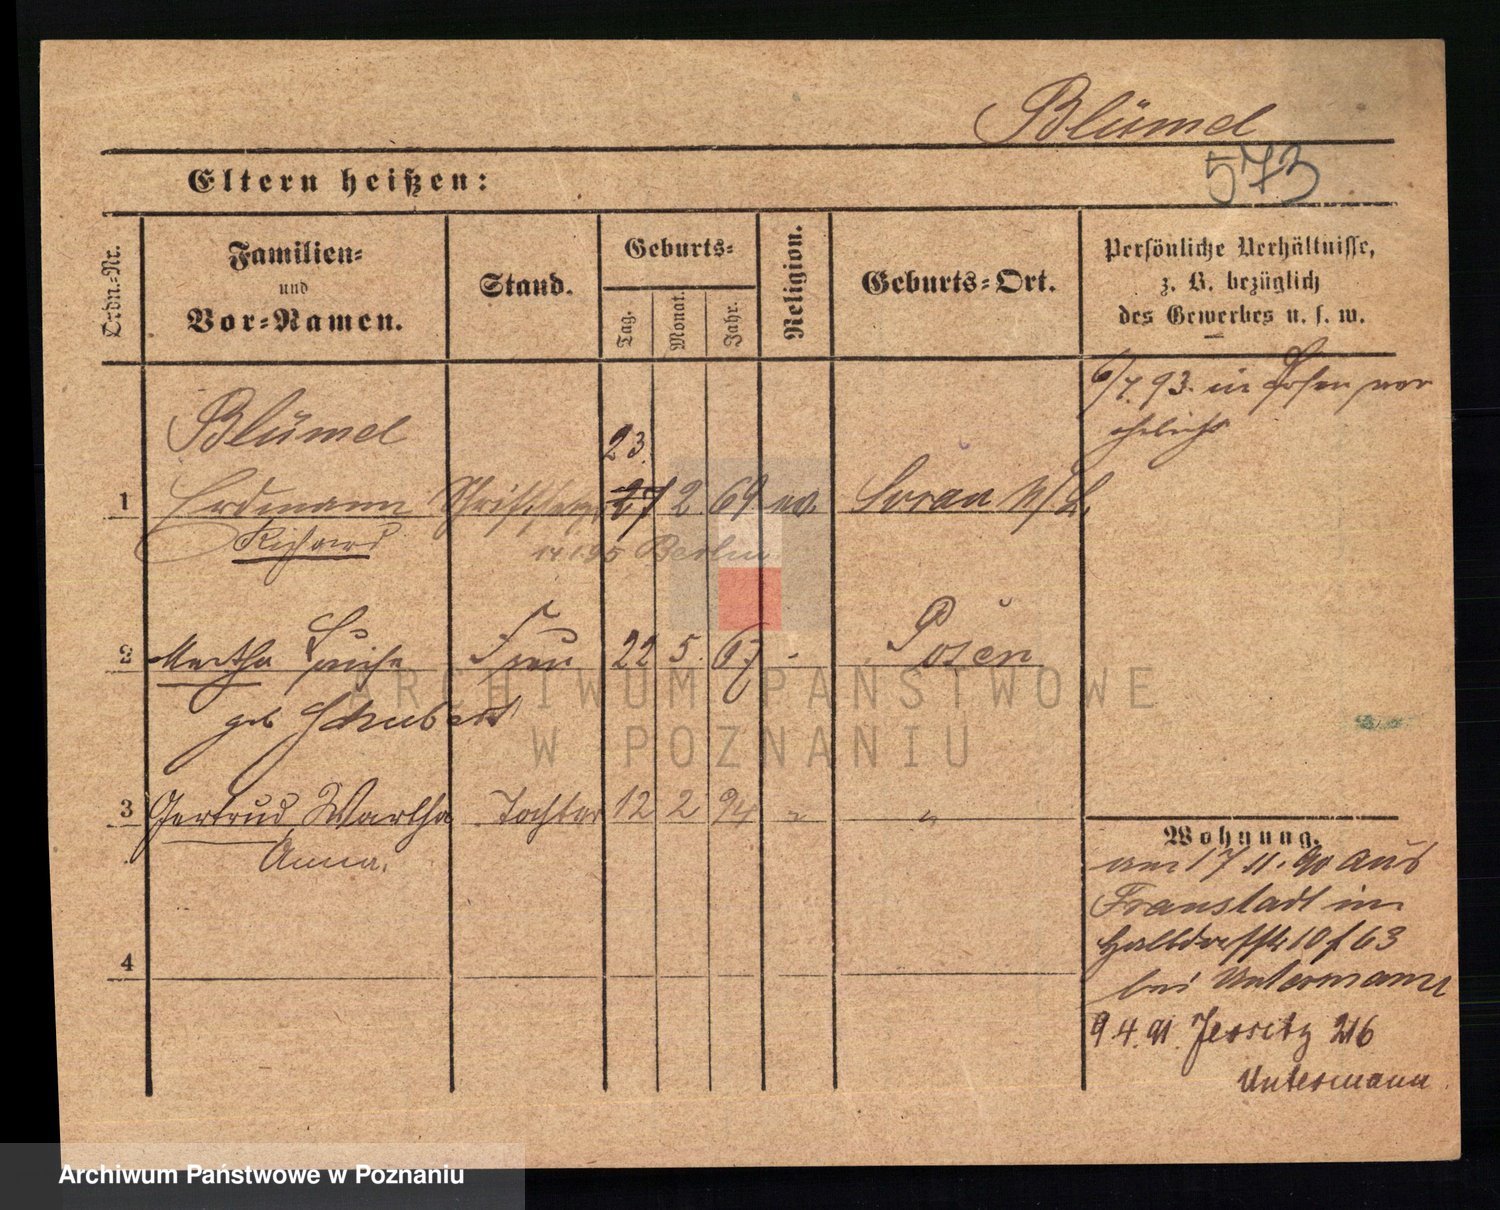 Blümel
573
Eltern heißen:
Ordn.-Nr.
Familien-
und
Vor-Namen.
Stand.
Geburts-
Tag.
Monat.
Jahr.
Religion.
Geburts-Ort.
Persönliche Verhältnisse,
z. B. bezüglich
des Gewerbes u. s. w.
6/7. 93. in Posen ver
ehelicht
Blümel
23.
1 Erdmann Schriftsetzer 27 2 69 ev. Sorau N/L.
Richard
Berlin
2 Martha Luise Frau 22 5. 67 Posen
geb Schubert
3 Gertrud Martha Tochter 12 2 94 " "
Anna.
4
Wohnung.
am 17 11. 90 aus
Fraustadt in
Halbdorfstr 10 f 63
bei Untermann
9 4. 91. Jersitz 216
Untermann
ARCHIWUM PAŃSTWOWE
W POZNANIU
Archiwum Państwowe w Poznaniu